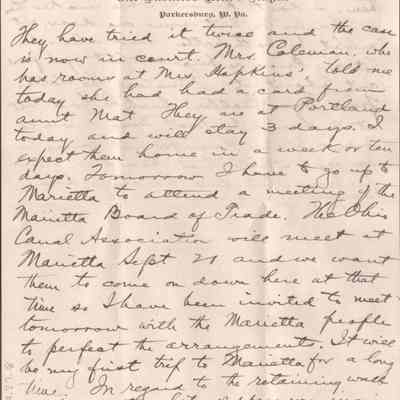 Parkersburg, W. Va.
They have tried it twice and the case
is now in court. Mrs. Coleman, who
has rooms at Mrs. Hopkins', told me
today she had had a card from
aunt Mat. They are at Portland
today and will stay 3 days. I
expect them home in a week or ten
days. Tomorrow I have to go up to
Marietta to attend a meeting of the
Marietta Board of Trade. The Ohio
Canal Association will meet at
Marietta Sept 21 and we want
them to come on down here at that
time so I have been invited to meet
tomorrow with the Marietta people
to perfect the arrangements. It will
be my first trip to Marietta for a long
time. In regard to the retaining walk